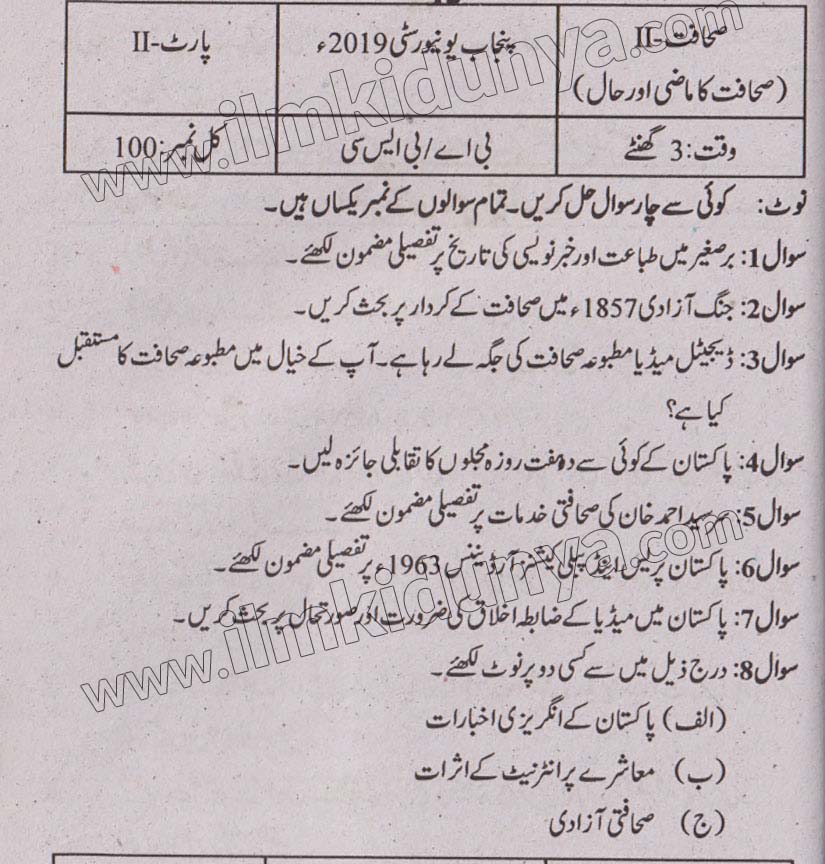 صحافت-II
(صحافت کا ماضی اور حال)
پنجاب یونیورسٹی 2019ء
پارٹ-II
وقت: 3 گھنٹے
بی اے/بی ایس سی
کل نمبر: 100
نوٹ: کوئی سے چار سوال حل کریں۔ تمام سوالوں کے نمبر یکساں ہیں۔
سوال 1: برصغیر میں طباعت اور خبر نویسی کی تاریخ پر تفصیلی مضمون لکھئے۔
سوال 2: جنگ آزادی 1857ء میں صحافت کے کردار پر بحث کریں۔
سوال 3: ڈیجیٹل میڈیا مطبوعہ صحافت کی جگہ لے رہا ہے۔ آپ کے خیال میں مطبوعہ صحافت کا مستقبل
کیا ہے؟
سوال 4: پاکستان کے کوئی سے دو ہفت روزہ مجلوں کا تقابلی جائزہ لیں۔
سوال 5: سرسید احمد خان کی صحافتی خدمات پر تفصیلی مضمون لکھئے۔
سوال 6: پاکستان پریس اینڈ پبلی کیشنز آرڈیننس 1963ء پر تفصیلی مضمون لکھئے۔
سوال 7: پاکستان میں میڈیا کے ضابطہ اخلاق کی ضرورت اور صورتحال پر بحث کریں۔
سوال 8: درج ذیل میں سے کسی دو پر نوٹ لکھئے۔
(الف) پاکستان کے انگریزی اخبارات
(ب) معاشرے پر انٹرنیٹ کے اثرات
(ج) صحافتی آزادی
www.ilmkidunya.com
www.ilmkidunya.com